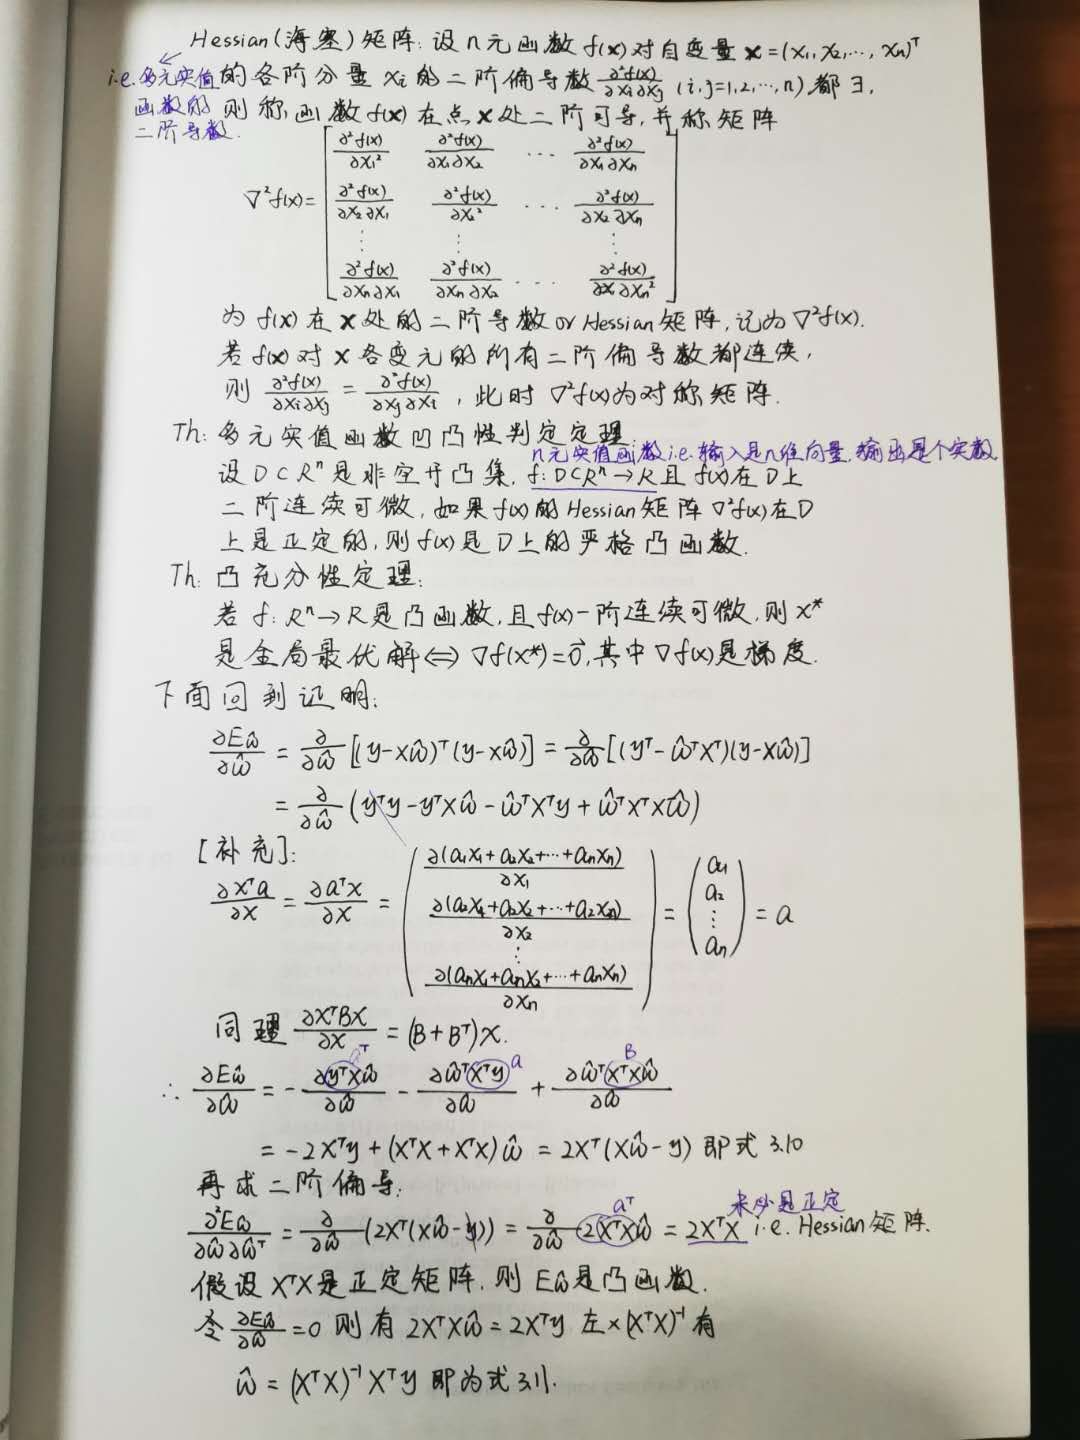 Hessian(海塞)矩阵: 设n元函数 f(x) 对自变量 x=(x₁, x₂, ..., xn)ᵀ
i.e.多元实值函数的二阶导数.
的各阶分量 xi 的二阶偏导数 ∂²f(x)/∂xi∂xj (i,j=1,2,...,n) 都∃,
则称函数 f(x) 在点 x 处二阶可导, 并称矩阵
∇²f(x)= [ ∂²f(x)/∂x₁² ∂²f(x)/∂x₁∂x₂ ... ∂²f(x)/∂x₁∂xn
∂²f(x)/∂x₂∂x₁ ∂²f(x)/∂x₂² ... ∂²f(x)/∂x₂∂xn
⋮ ⋮ ⋮
∂²f(x)/∂xn∂x₁ ∂²f(x)/∂xn∂x₂ ... ∂²f(x)/∂xn² ]
为 f(x) 在 x 处的二阶导数 or Hessian 矩阵, 记为 ∇²f(x).
若 f(x) 对 x 各变元的所有二阶偏导数都连续,
则 ∂²f(x)/∂xi∂xj = ∂²f(x)/∂xj∂xi , 此时 ∇²f(x) 为对称矩阵.
Th: 多元实值函数凹凸性判定定理:
n元实值函数 i.e.输入是n维向量, 输出是个实数
设 D⊂Rⁿ 是非空开凸集, f: D⊂Rⁿ→R 且 f(x) 在 D 上
二阶连续可微, 如果 f(x) 的 Hessian 矩阵 ∇²f(x) 在 D
上是正定的, 则 f(x) 是 D 上的严格凸函数.
Th: 凸充分性定理:
若 f: Rⁿ→R 是凸函数, 且 f(x) 一阶连续可微, 则 x*
是全局最优解 ⇔ ∇f(x*)=0⃗, 其中 ∇f(x) 是梯度.
下面回到证明:
∂Eŵ/∂ŵ = ∂/∂ŵ [(y-Xŵ)ᵀ(y-Xŵ)] = ∂/∂ŵ [(yᵀ-ŵᵀXᵀ)(y-Xŵ)]
= ∂/∂ŵ (yᵀy-yᵀXŵ-ŵᵀXᵀy+ŵᵀXᵀXŵ)
[补充]:
∂xᵀa/∂x = ∂aᵀx/∂x = ( ∂(a₁x₁+a₂x₂+...+anxn)/∂x₁
∂(a₂x₁+a₂x₂+...+a₂xn)/∂x₂
⋮
∂(anx₁+anx₂+...+anxn)/∂xn ) = ( a₁ a₂ ⋮ an ) = a
同理 ∂xᵀBx/∂x = (B+Bᵀ)x.
aᵀ a B
∴ ∂Eŵ/∂ŵ = - ∂yᵀXŵ/∂ŵ - ∂ŵᵀXᵀy/∂ŵ + ∂ŵᵀXᵀXŵ/∂ŵ
= -2Xᵀy + (XᵀX+XᵀX)ŵ = 2Xᵀ(Xŵ-y) 即式 3.10
再求二阶偏导:
aᵀ 未必是正定
∂²Eŵ/∂ŵ∂ŵᵀ = ∂/∂ŵ (2Xᵀ(Xŵ-y)) = ∂/∂ŵ 2XᵀXŵ = 2XᵀX i.e. Hessian 矩阵.
假设 XᵀX 是正定矩阵, 则 Eŵ 是凸函数.
令 ∂Eŵ/∂ŵ =0 则有 2XᵀXŵ = 2Xᵀy 左×(XᵀX)⁻¹ 有
ŵ = (XᵀX)⁻¹Xᵀy 即为式 3.11.